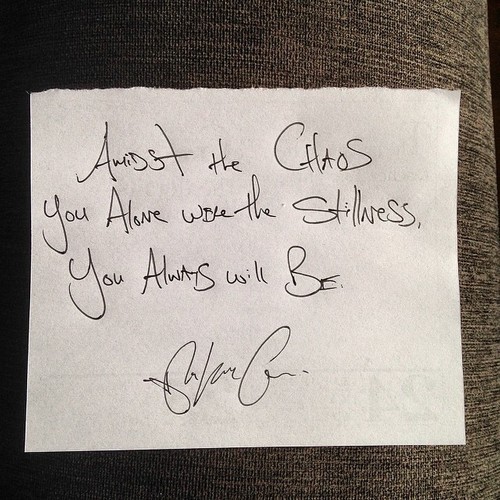 Amidst the Chaos
You Alone were the Stillness.
You Always will Be.